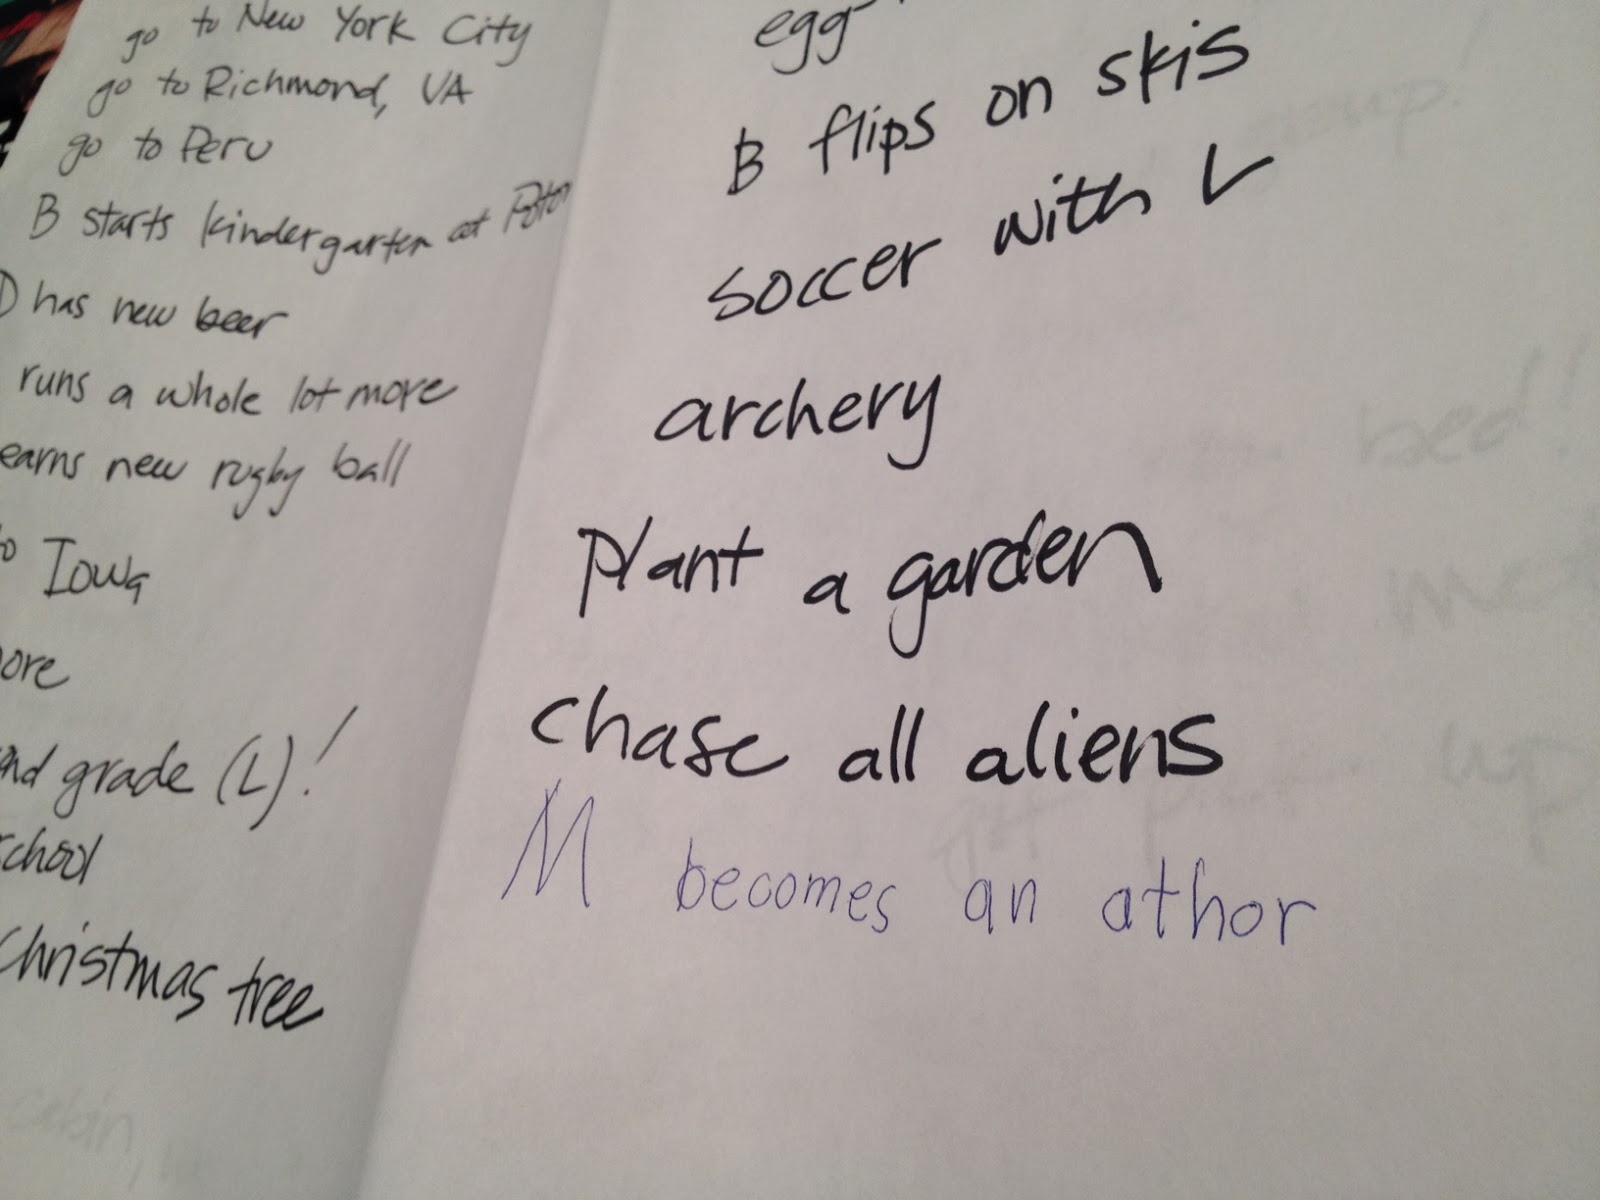 go to New York City
go to Richmond, VA
go to Peru
B starts kindergarten at
D has new beer
runs a whole lot more
earns new rugby ball
to Iowa
ore
nd grade (L)!
school
Christmas tree
cabin,
egg
B flips on skis
soccer with L
archery
plant a garden
chase all aliens
M becomes an athor
bed!!
up